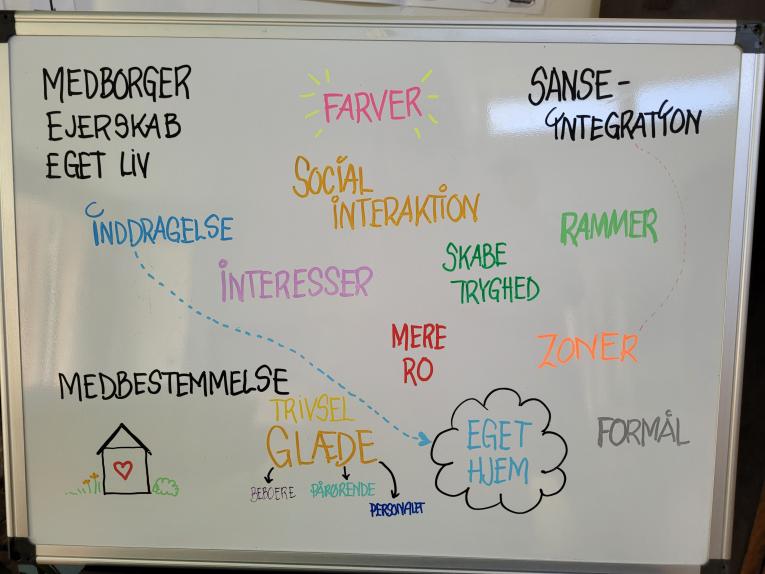 MEDBORGER
EJERSKAB
EGET LIV
FARVER
SANSE-
INTEGRATION
SOCIAL
INTERAKTION
INDDRAGELSE
RAMMER
INTERESSER
SKABE
TRYGHED
MERE
RO
ZONER
MEDBESTEMMELSE
TRIVSEL
GLÆDE
BEBOERE
PÅRØRENDE
PERSONALET
EGET
HJEM
FORMÅL